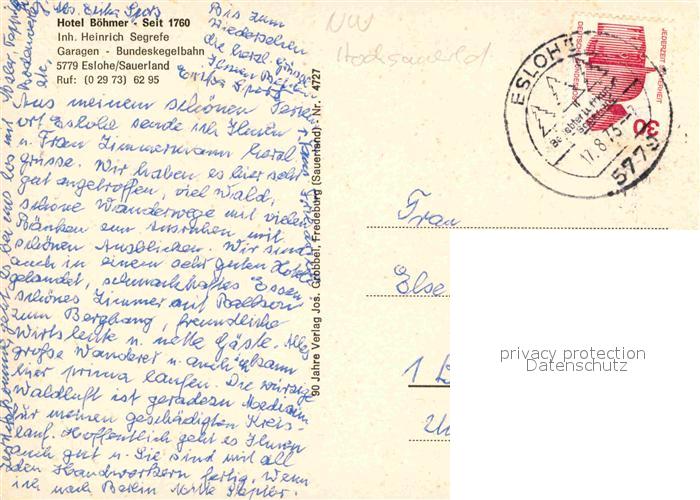 Hotel Böhmer - Seit 1760
Inh. Heinrich Segrefe
Garagen - Bundeskegelbahn
5779 Eslohe/Sauerland
Ruf: (0 29 73) 62 95
Aus meinem schönen Ferien
ort Eslohe sende ich Ihnen
u. Frau Zimmermann herzl.
grüsse. Wir haben es hier sehr
gut angetroffen, viel Wald,
schöne Wanderwege mit vielen
Bänken zum Ausruhen mit
schönen Ausblicken. Wir sind
auch in einem sehr guten Hotel
gelandet, schmackhaftes Essen,
schönes Zimmer mit Balkon
zum Berghang, freundliche
Wirtsleute u. nette Gäste. Alles
große Wanderer u. auch ich kann
hier prima laufen. Die würzige
Waldluft ist geradezu Medizin
für meinen geschädigten Kreis-
lauf. Hoffentlich geht es Ihnen
auch gut u. Sie sind mit all
den Handwerkern fertig. Wenn
ich nach Berlin
Bis zum
Wiedersehen
die herzl. Grüsse
90 Jahre Verlag Jos. Grobbel, Fredeburg (Sauerland) - Nr. 4727
NW
Hochsauerld
ESLOHE
17.8.75
5779
DEUTSCHE BUNDESPOST
JEDERZEIT SICHERHEIT
30
Frau
Else
1
privacy protection
Datenschutz